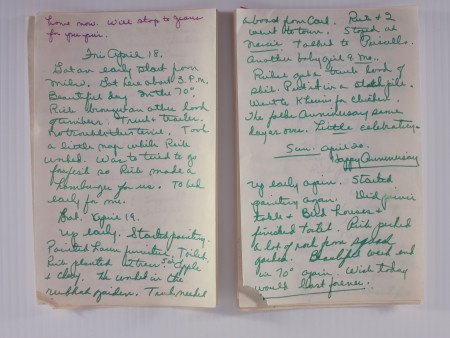 home now. Will stop to
for
Fri April 18.
Got an early start from
Milw. Got here about 3 P.M.
Beautiful day. In the 70°.
Rich brought another load
of lumber. Truck & trailer.
No trouble this time. Took
a little nap while Rich
worked. Was to tired to go
for fish so Rich made a
hamburger for us. To bed
early for me.
Sat. April 19.
Up early. Started painting.
Painted lawn furniture, Toilet.
Rich planted apple
& Cherry. He worked in the
garden. Truck needed
a board from Carl. Rich & I
went to town. Stopped at
Talked to Priscilla.
Another baby girl 8 Mo.
Richie got a truck load of
dirt. Put it in a pile.
Went to for chicken.
The folks Anniversary same
day as ours. Little celebrating.
Sun. April 20.
Happy Anniversary
Up early again. Started
painting again. Did picnic
table & Bird houses &
finished toilet. Rich picked
a lot of rock from
garden. Beautiful week end
in 70° again. Wish today
would last forever.